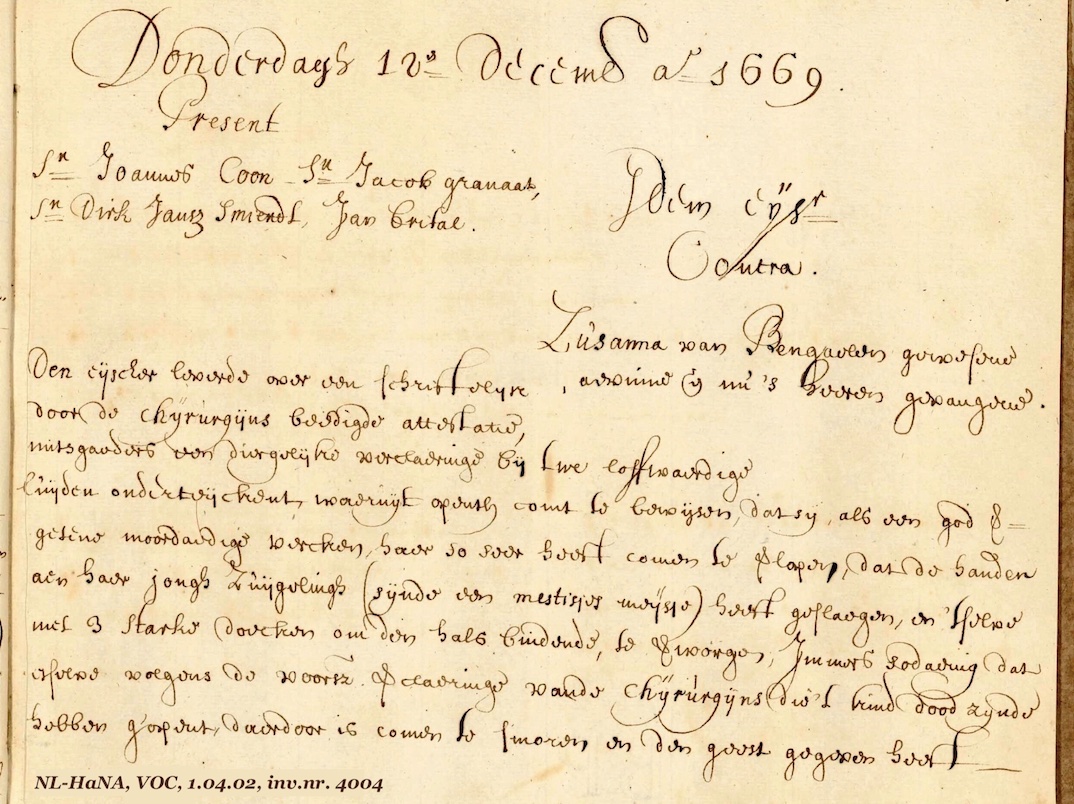 Donderdagh 12en Decemb ao 1669.
Present
Sr Joannes Coon Sr Jacob granaat,
Sr Dirk Jansz Smiendt, Jan brital.
Idem eyssr
Contra.
Zusanna van Bengaelen gewesene
slavinne en nu 's heeren gevangene.
Den eijscher leverde over een schriftelijke
door de Chyrurgijns beedigde attestatie,
mitsgaeders een diergelijke verclaeringe bij twe loffwaerdige
luijden onderteijckent, waeruijt openth comt te bewijsen, dat sij, als een god v=
getene moordaedige vercken, haer so seer heeft comen te vlopen, dat de handen
aen haer jongh zuijgelingh (sijnde een mestisjes meijsje) heeft geslaegen, en 'tselve
met 3 starke doecken om den hals bindende, te vworgen, Immers sodaenig dat
etselve volgens de voorsz. vclaeringe vande Chyrurgijns die 't kind dood zynde
hebben g'opent, daerdoor is comen te smoren en den geest gegeven heeft
NL-HaNA, VOC, 1.04.02, inv.nr. 4004